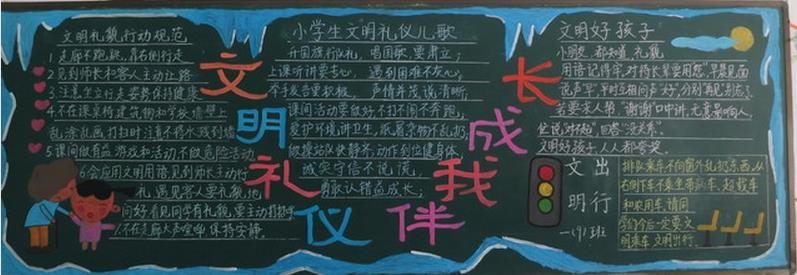 文明礼貌行动规范
1.走廊不跑跳,靠右侧行走
2.见到师长和客人主动让路
3.注意坐立行走姿势保持健康
4.不在课桌椅建筑物和学校墙壁上
乱涂乱画打扫时注意不将水残到墙
5.课间做有益游戏和活动,不做危险活动
6会应用文明用语,见到师长主动行
礼,遇见客人要礼貌地
问好看见同学有礼貌,要主动打招呼
7.不在走廊大声喧哗保持安静。
文明礼仪
伴我成长
小学生文明礼仪儿歌
升国旗行队礼,唱国歌,要肃立;
上课听讲要专心,遇到困难不灰心;
举手发言要积极,声情并茂说清晰;
课间活动要做好,不打不闹不奔跑;
爱护环境讲卫生,纸屑杂物不乱扔;
做操站队快静齐,动作到位健身体
诚实守信不说谎,
勇敢认错益成长;
文明好孩子
小朋友,都知道,礼貌
用语记得牢,对待长辈要用“您”早晨见面
说声“早”,平时互相问声“好”,分别“再见”别忘了
若要求人帮“谢谢”口中讲,无意影响人,
忙说“对不起”回答“没关系”。
文明好孩子,人人都夸奖
文明
出行
一(9)班
排队乘车不向窗外乱扔东西,从
右侧下车不乘坐带病车、超载车
和农用车,请同
学们今后一定要文
明乘车 文明出行.